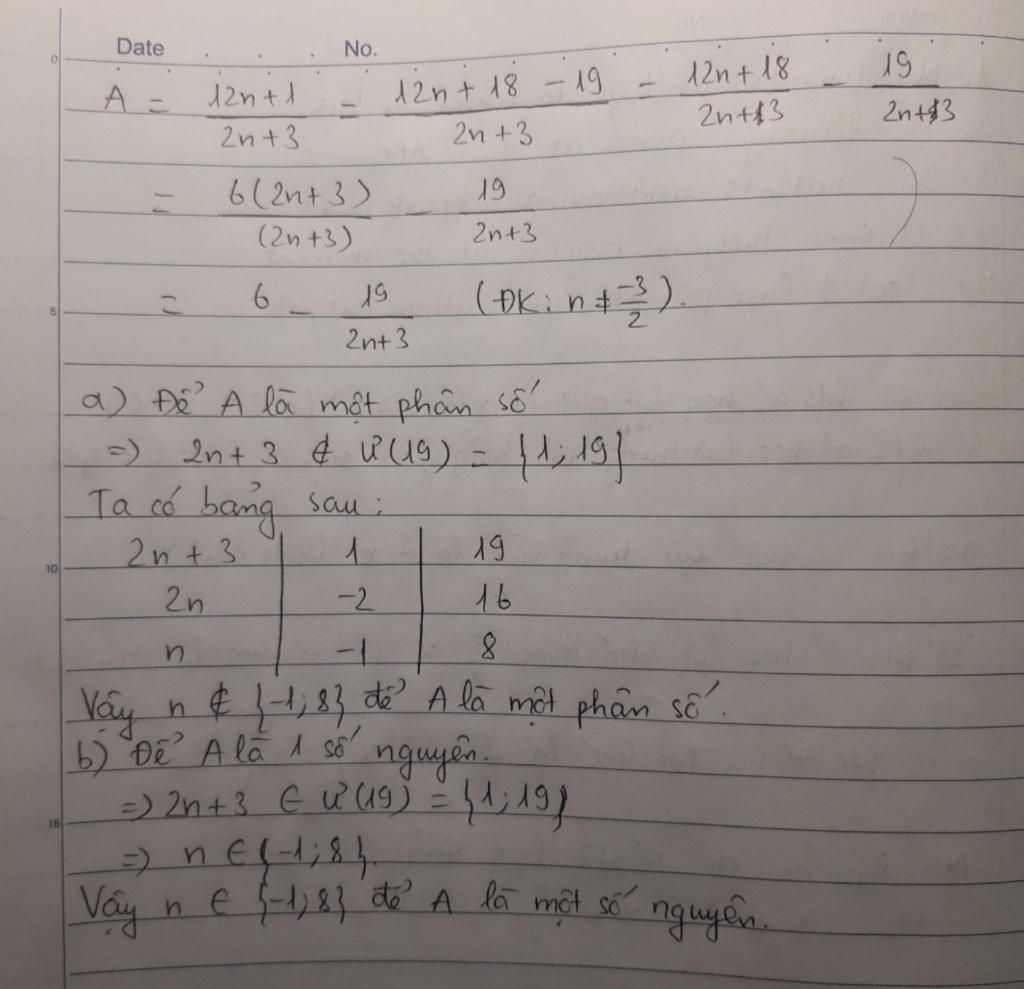 Date . . . No.
A = \frac{12n+1}{2n+3} = \frac{12n+18-19}{2n+3} = \frac{12n+18}{2n+3} - \frac{19}{2n+3}
= \frac{6(2n+3)}{(2n+3)} - \frac{19}{2n+3}
= 6 - \frac{19}{2n+3} (ĐK: n ≠ \frac{-3}{2}).
5
a) Để A là một phân số
=> 2n+3 ∉ Ư(19) = {1; 19}
Ta có bảng sau:
2n+3 | 1 | 19
10
2n | -2 | 16
n | -1 | 8
Vậy n ∉ {-1; 8} để A là một phân số.
b) Để A là 1 số nguyên.
=> 2n+3 ∈ Ư(19) = {1; 19}
15
=> n ∈ {-1; 8}.
Vậy n ∈ {-1; 8} để A là một số nguyên.